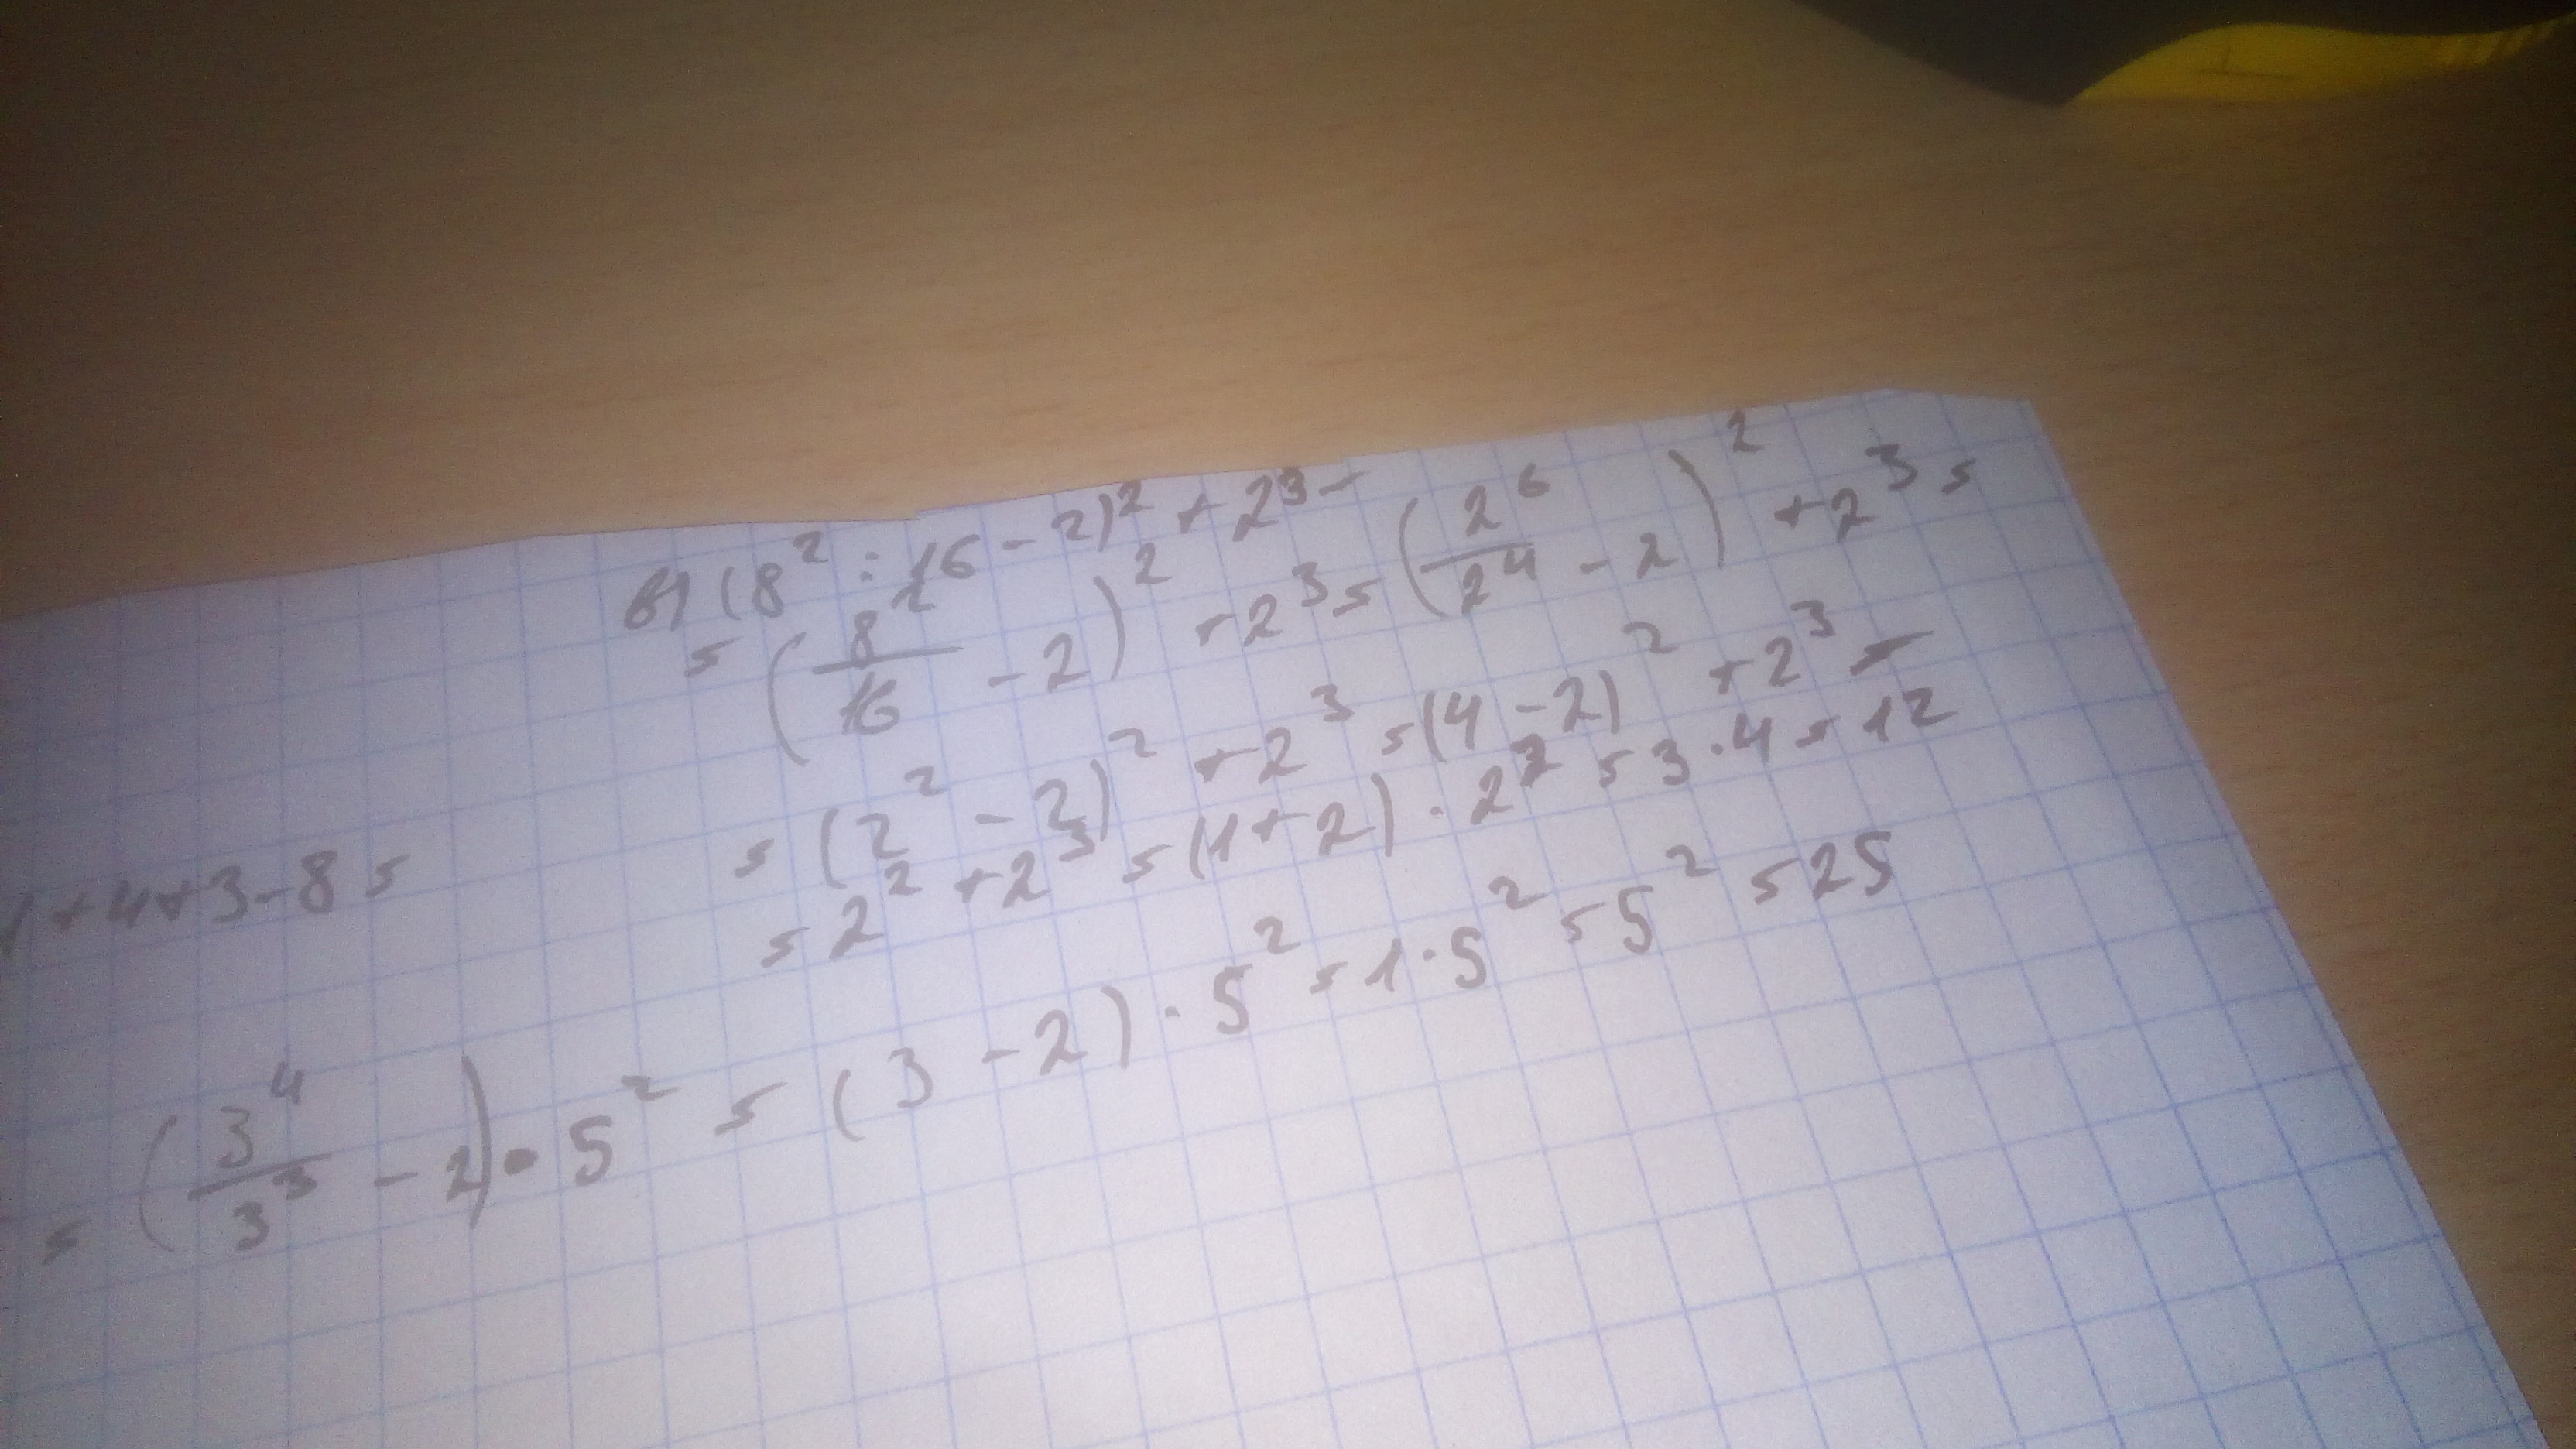 в) (8² : 16 - 2)² + 2³ =
= (8²/16 - 2)² + 2³ = (2⁶/2⁴ - 2)² + 2³ =
= (2² - 2)² + 2³ = (4 - 2)² + 2³ =
= 2² + 2³ = (1 + 2) · 2² = 3 · 4 = 12
1 + 4 + 3 - 8 =
= (3⁴/3³ - 2) · 5² = (3 - 2) · 5² = 1 · 5² = 5² = 25